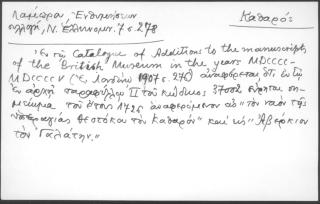 Λαμέρα, Ἐνθυμήσεων
συλλογή, Ν. Ἑλληνομν. 7 σ. 278
Καθαρός:
Ἐν τῷ Catalogue of Additions to the manuscripts
of the British Museum in the years MDCCCC-
MDCCCCV (ἐν Λονδίνῳ 1907 σ. 276) ἀναφέρεται ὅτι ἐν τῷ
ἐν ἀρχῇ παραφύλλῳ II τοῦ κώδικος 37002 εὕρηται ση-
μείωμα τοῦ ἔτους 1725 ἀναφερόμενον εἰς "τὸν ναὸν τῆς
ὑπεραγίας Θεοτόκου τὸν Καθαρὸν" καὶ εἰς "Ἀβέρκιον
τὸν Γαλάτην."